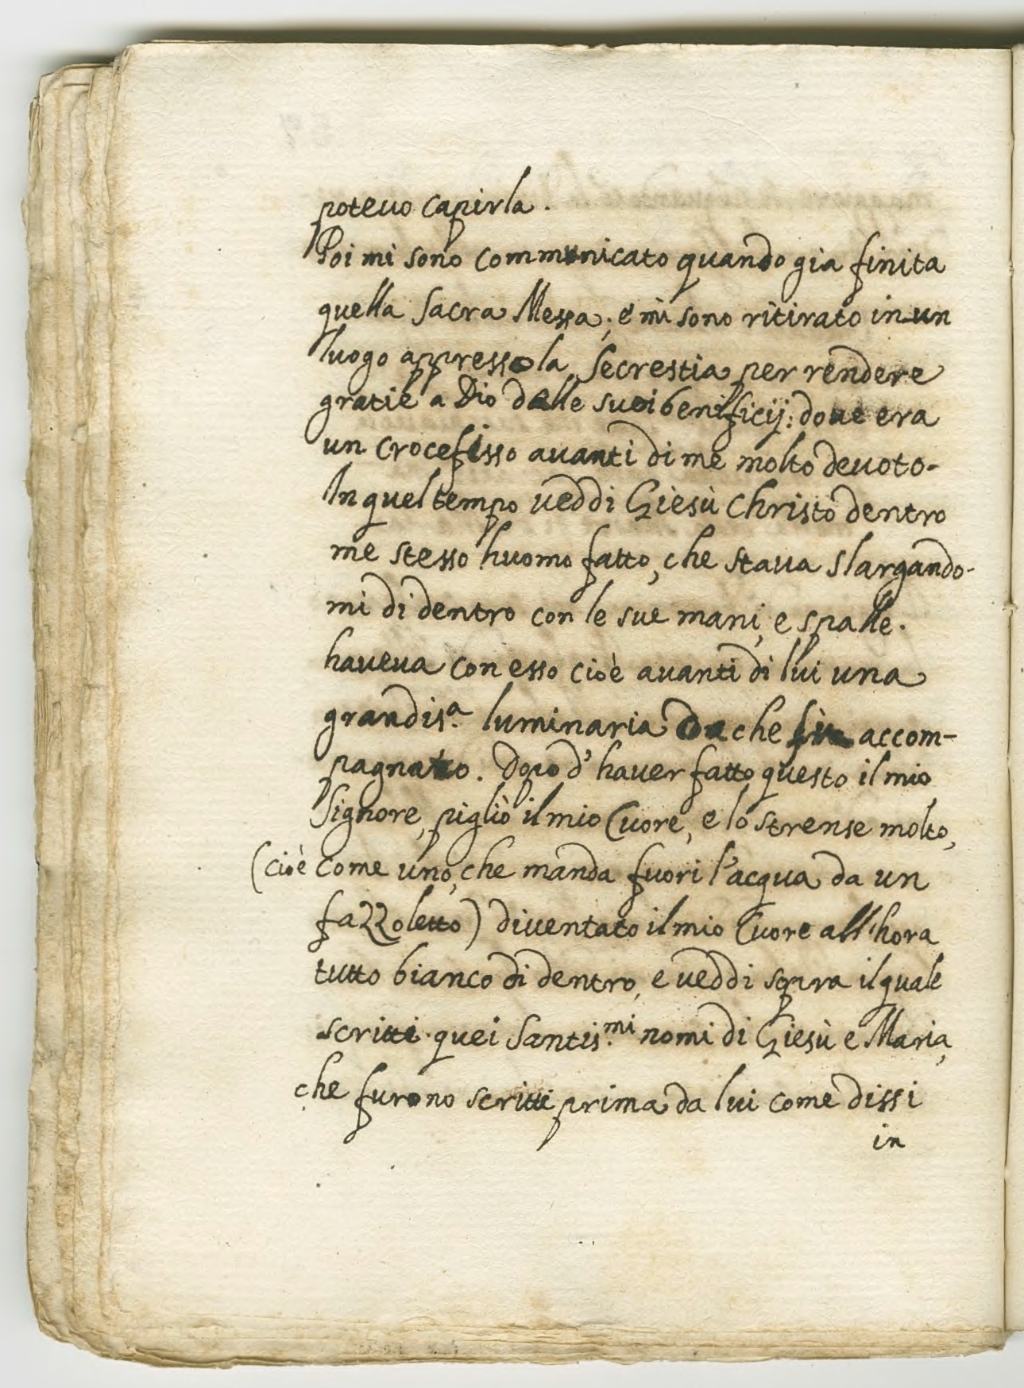 poteuo capirla.
Poi mi sono communicato quando gia finita
quella Sacra Messa, e mi sono ritirato in un
luogo appresso la Secrestia per rendere
gratie a Dio delle suoi benificij: doue era
un crocefisso auanti di me molto deuoto-
In quel tempo ueddi Giesù Christo dentro
me stesso huomo fatto, che staua slargando-
mi di dentro con le sue mani, e spalle.
haueua con esso cioè auanti di lui una
grandis.a luminaria Da che fù accom-
pagnato. Dopo d'hauer fatto questo il mio
Signore, pigliò il mio Cuore, e lo strense molto,
(cioè come uno, che manda fuori l'acqua da un
fazzoletto) diuentato il mio Cuore all'hora
tutto bianco di dentro, e ueddi sopra il quale
scritti quei Santis.mi nomi di Giesù e Maria,
che furono scritti prima da lui come dissi
in